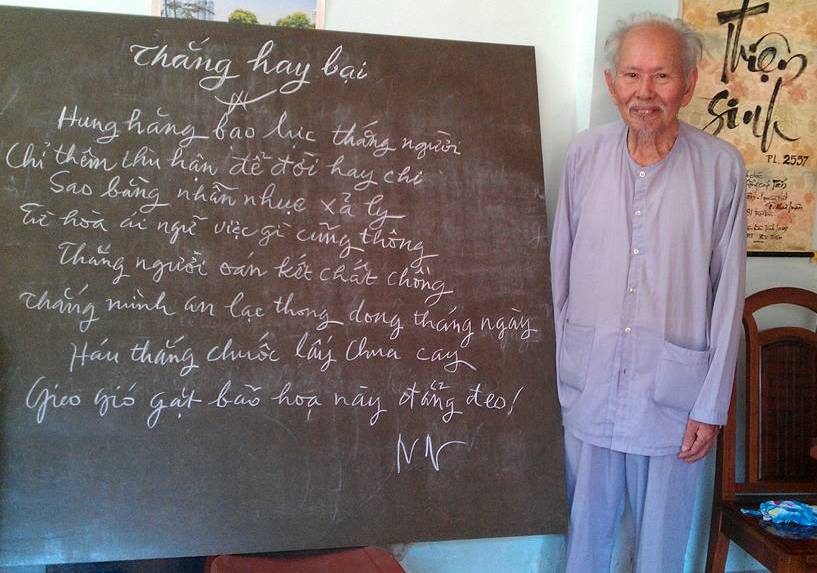 Thắng hay bại
Hung hăng bạo lực thắng người
Chỉ thêm thù hận để đời hay chi
Sao bằng nhẫn nhục xả ly
Từ hòa ái ngữ việc gì cũng thông
Thắng người oán kết chất chồng
Thắng mình an lạc thong dong tháng ngày
Háu thắng chuốc lấy chua cay
Gieo gió gặt bão hoạ này đắng đeo!
NN
Thiện
Sinh
PL. 2557